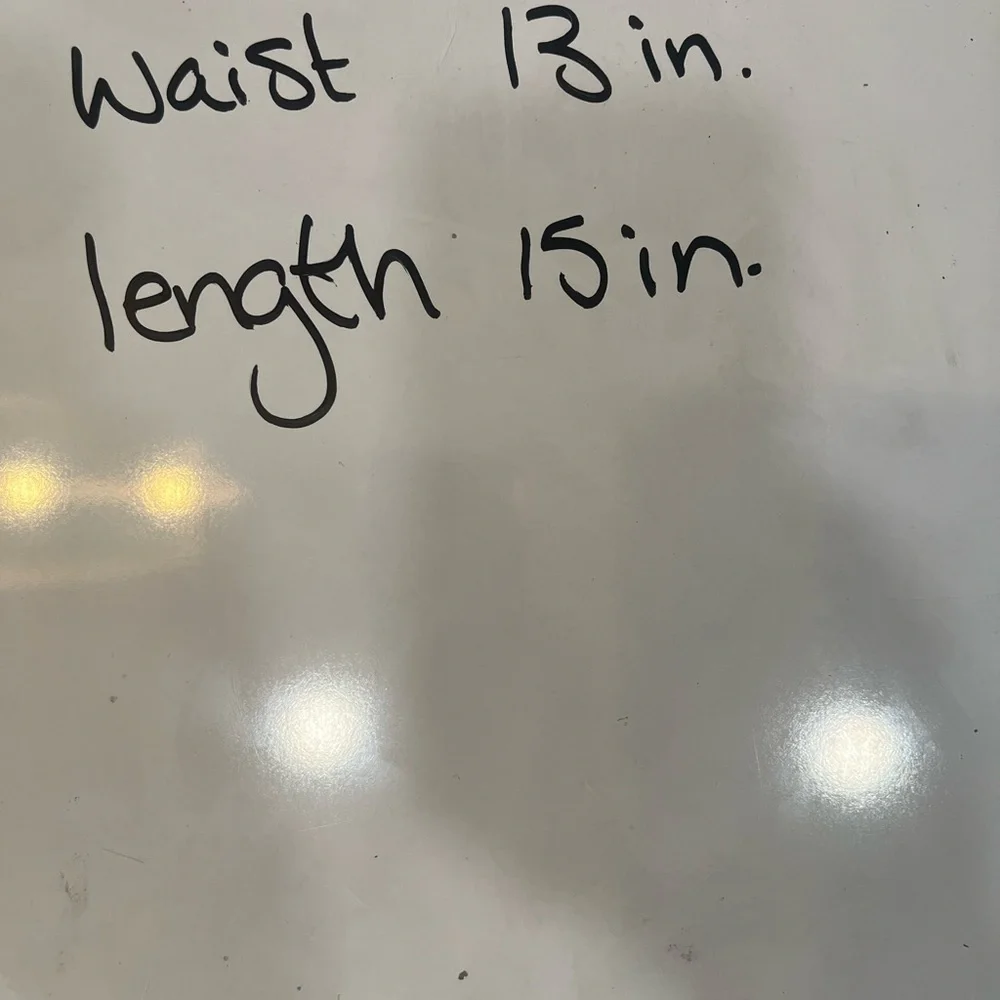 Waist 13 in.
length 15 in.